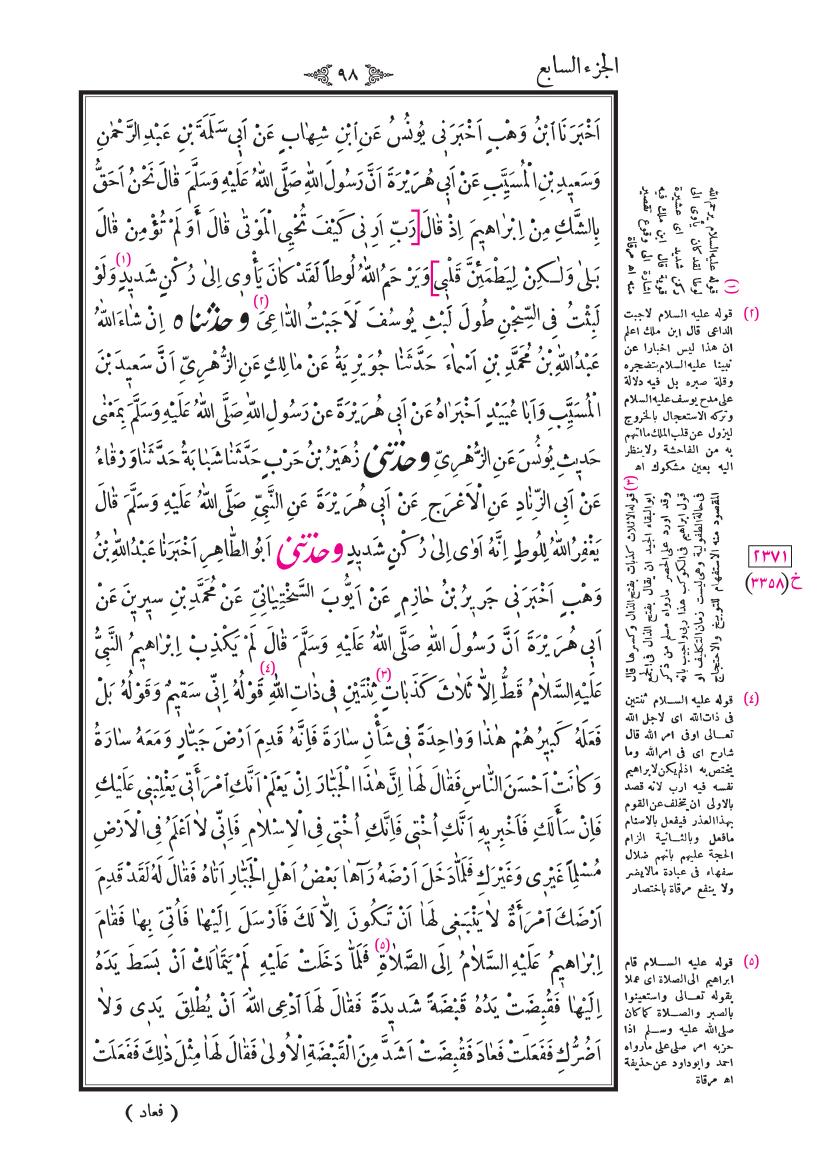 الجزء السابع
٩٨
اَخْبَرَنَا ابْنُ وَهْبٍ اَخْبَرَنِى يُونُسُ عَنِ ابْنِ شِهَابٍ عَنْ اَبِى سَلَمَةَ بْنِ عَبْدِ الرَّحْمٰنِ
وَسَعِيدِ بْنِ الْمُسَيَّبِ عَنْ اَبِى هُرَيْرَةَ اَنَّ رَسُولَ اللهِ صَلَّى اللهُ عَلَيْهِ وَسَلَّمَ قَالَ نَحْنُ اَحَقُّ
بِالشَّكِ مِنْ اِبْرَاهِيمَ اِذْ قَالَ [رَبِّ اَرِنِى كَيْفَ تُحْيِى الْمَوْتٰى قَالَ أَوَلَمْ تُؤْمِنْ قَالَ
بَلىٰ وَلٰكِنْ لِيَطْمَئِنَّ قَلْبِى] وَيَرْحَمُ اللهُ لُوطاً لَقَدْ كَانَ يَأْوِى اِلىٰ رُكْنٍ شَدِيدٍ (١) وَلَوْ
لَبِثْتُ فِى السِّجْنِ طُولَ لَبْثِ يُوسُفَ لَاَجَبْتُ الدَّاعِىَ (٢) وحدثناه اِنْ شَاءَ اللهُ
عَبْدُ اللهِ بْنُ مُحَمَّدِ بْنِ اَسْمَاءَ حَدَّثَنَا جُوَيْرِيَةُ عَنْ مَالِكٍ عَنِ الزُّهْرِىِّ اَنَّ سَعِيدَ بْنَ
الْمُسَيَّبِ وَاَبَا عُبَيْدٍ اَخْبَرَاهُ عَنْ اَبِى هُرَيْرَةَ عَنْ رَسُولِ اللهِ صَلَّى اللهُ عَلَيْهِ وَسَلَّمَ بِمَعْنٰى
حَدِيثِ يُونُسَ عَنِ الزُّهْرِىِّ وحدثنى زُهَيْرُ بْنُ حَرْبٍ حَدَّثَنَا شَبَابَةُ حَدَّثَنَا وَرْقَاءُ
عَنْ اَبِى الزِّنَادِ عَنِ الْاَعْرَجِ عَنْ اَبِى هُرَيْرَةَ عَنِ النَّبِىِّ صَلَّى اللهُ عَلَيْهِ وَسَلَّمَ قَالَ
يَغْفِرُ اللهُ لِلُوطٍ اِنَّهُ اَوٰى اِلىٰ رُكْنٍ شَدِيدٍ وحدثنى اَبُو الطَّاهِرِ اَخْبَرَنَا عَبْدُ اللهِ بْنُ
وَهْبٍ اَخْبَرَنِى جَرِيرُ بْنُ حَازِمٍ عَنْ اَيُّوبَ السَّخْتِيَانِىِّ عَنْ مُحَمَّدِ بْنِ سِيرِينَ عَنْ
اَبِى هُرَيْرَةَ اَنَّ رَسُولَ اللهِ صَلَّى اللهُ عَلَيْهِ وَسَلَّمَ قَالَ لَمْ يَكْذِبْ اِبْرَاهِيمُ النَّبِىُّ
عَلَيْهِ السَّلَامُ قَطُّ اِلَّا ثَلَاثَ كَذَبَاتٍ (٣) ثِنْتَيْنِ فِى ذَاتِ اللهِ (٤) قَوْلُهُ اِنِّى سَقِيمٌ وَقَوْلُهُ بَلْ
فَعَلَهُ كَبِيرُهُمْ هٰذَا وَوَاحِدَةً فِى شَأْنِ سَارَةَ فَاِنَّهُ قَدِمَ اَرْضَ جَبَّارٍ وَمَعَهُ سَارَةُ
وَكَانَتْ اَحْسَنَ النَّاسِ فَقَالَ لَهَا اِنَّ هٰذَا الْجَبَّارَ اِنْ يَعْلَمْ اَنَّكِ امْرَأَتِى يَغْلِبْنِى عَلَيْكِ
فَاِنْ سَأَلَكِ فَاَخْبِرِيهِ اَنَّكِ اُخْتِى فَاِنَّكِ اُخْتِى فِى الْاِسْلَامِ فَاِنِّى لَا اَعْلَمُ فِى الْاَرْضِ
مُسْلِماً غَيْرِى وَغَيْرَكِ فَلَمَّا دَخَلَ اَرْضَهُ رَآهَا بَعْضُ اَهْلِ الْجَبَّارِ اَتَاهُ فَقَالَ لَهُ لَقَدْ قَدِمَ
اَرْضَكَ امْرَأَةٌ لَا يَنْبَغِى لَهَا اَنْ تَكُونَ اِلَّا لَكَ فَاَرْسَلَ اِلَيْهَا فَاُتِىَ بِهَا فَقَامَ
اِبْرَاهِيمُ عَلَيْهِ السَّلَامُ اِلَى الصَّلَاةِ (٥) فَلَمَّا دَخَلَتْ عَلَيْهِ لَمْ يَتَمَالَكْ اَنْ بَسَطَ يَدَهُ
اِلَيْهَا فَقُبِضَتْ يَدُهُ قَبْضَةً شَدِيدَةً فَقَالَ لَهَا ادْعِى اللهَ اَنْ يُطْلِقَ يَدِى وَلَا
اَضُرُّكِ فَفَعَلَتْ فَعَادَ فَقُبِضَتْ اَشَدَّ مِنَ الْقَبْضَةِ الْاُولىٰ فَقَالَ لَهَا مِثْلَ ذٰلِكَ فَفَعَلَتْ
( فعاد )
(١) قوله عليه السلام يرحم الله
لوطا لقد كان يأوى الى
ركن شديد اى عشيرة
قوية قال ابن ملك فيه
اشارة الى وقوع تقصير
منه اه مرقاة
(٢) قوله عليه السلام لاجبت
الداعى قال ابن ملك اعلم
ان هذا ليس اخبارا عن
نبينا عليه السلام بتضجره
وقلة صبره بل فيه دلالة
على مدح يوسف عليه السلام
وتركه الاستعجال بالخروج
ليزول عن قلب الملك ما اتهم
به من الفاحشة ولا ينظر
اليه بعين مشكوك اه
(٣) قوله الا ثلاث كذبات بفتح الذال وكسرها قال
ابو البقاء الجيد ان يقال بفتح الذال فى الجمع
وقد اورد على الحصر ما رواه مسلم من ذكر
قول ابراهيم فى الكوكب هذا ربى واجيب بانه
فى حالة الطفولية وهى ليست زمان التكليف او
المقصود منه الاستفهام للتوبيخ والاحتجاج
٢٣٧١
خ (٣٣٥٨)
(٤) قوله عليه السلام ثنتين
فى ذات الله اى لاجل الله
تعالى او فى امر الله قال
شارح اى فى امر الله وما
يختص به اذ لم يكن لابراهيم
نفسه فيه ارب لانه قصد
بالاولى ان يتخلف عن القوم
بهذا العذر فيفعل بالاصنام
ما فعل وبالثانية الزام
الحجة عليهم بانهم ضلال
سفهاء فى عبادة ما لا يضر
ولا ينفع مرقاة باختصار
(٥) قوله عليه السلام قام
ابراهيم الى الصلاة اى عملا
بقوله تعالى واستعينوا
بالصبر والصلاة كما كان
صلى الله عليه وسلم اذا
حزبه امر صلى على ما رواه
احمد وابو داود عن حذيفة
اه مرقاة